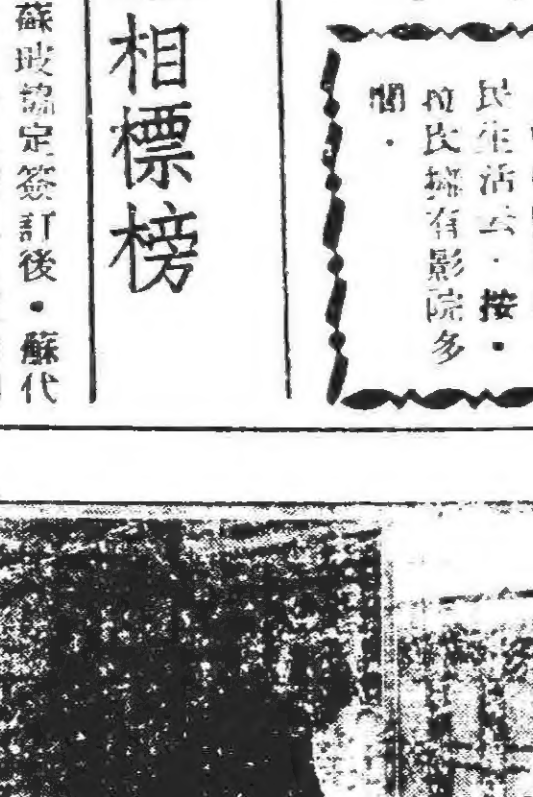 民生活云・按・
拉民擁有影院多
間・
相標榜
蘇玻協定簽訂後・蘇代